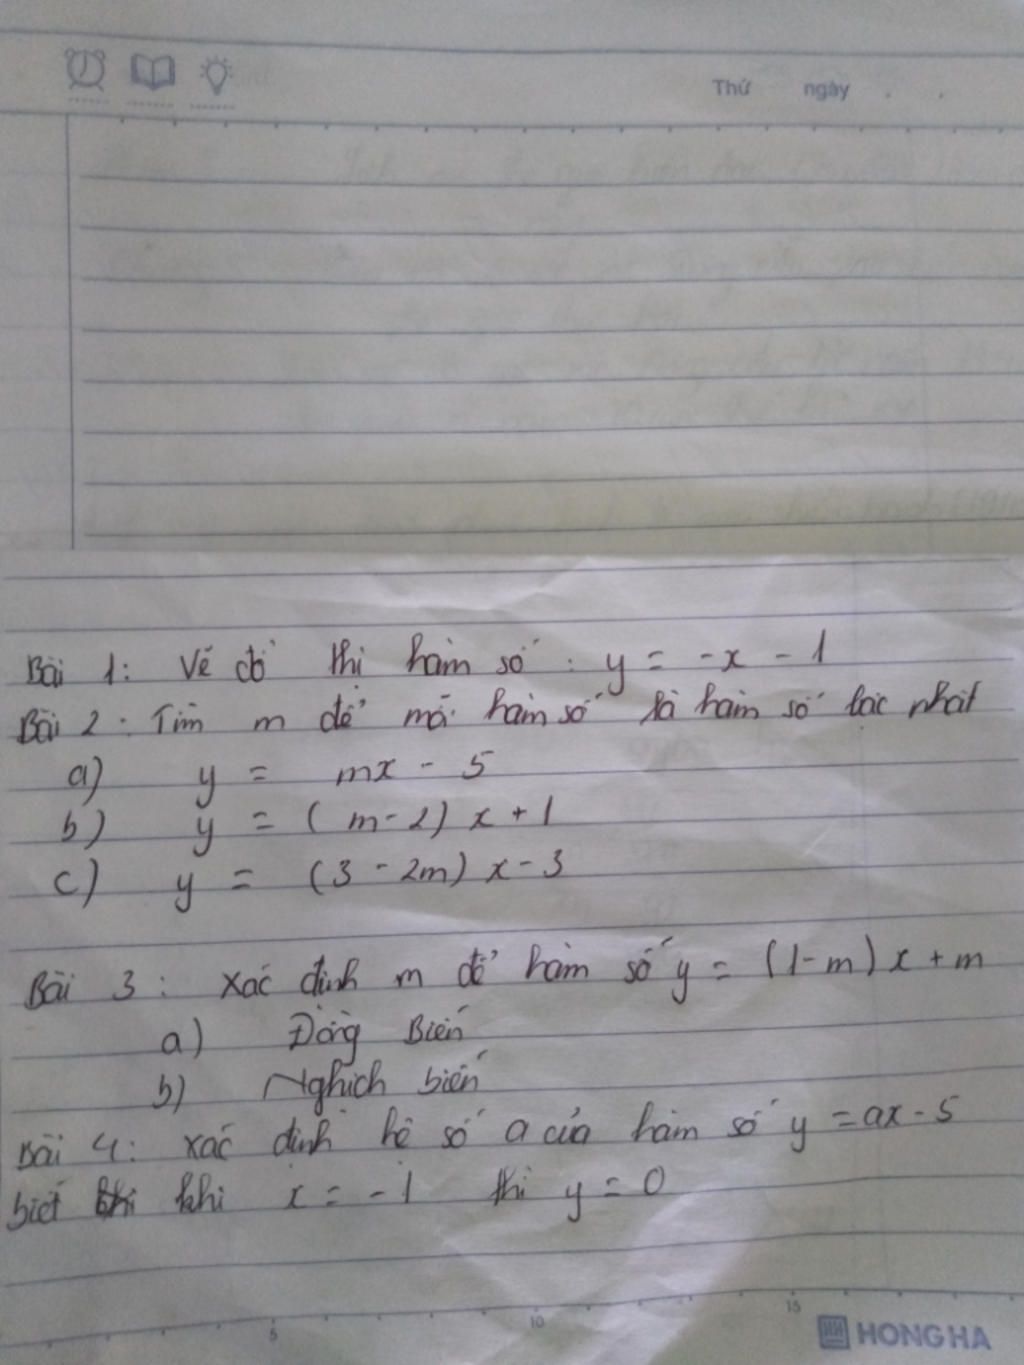 Thứ ngày
Bài 1: Vẽ đồ thị hàm số: y = -x - 1
Bài 2: Tìm m để mỗi hàm số là hàm số bậc nhất
a) y = mx - 5
b) y = (m-2) x + 1
c) y = (3 - 2m) x - 3
Bài 3: Xác định m để hàm số y = (1-m) x + m
a) Đồng Biến
b) Nghịch biến
Bài 4: Xác định hệ số a của hàm số y = ax - 5
biết khi x = -1 thì y = 0
5 10 15
HONG HA